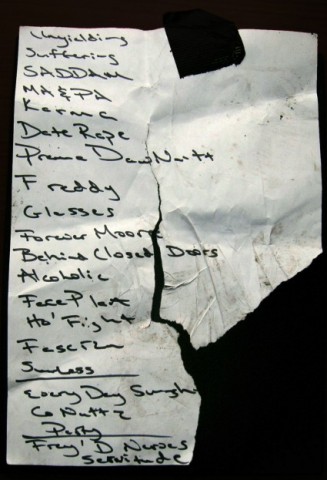 Unyielding
Suffering
SADDAM
MA & PA
Karma
Date Rape
Prima Daw Nortt
Freddy
Glasses
Forever Moore
Behind Closed Doors
Alcoholic
Face Plant
Ho' Fight
Sunless
Every Day Sunshi
Party
Fray'D Nerves
Servitude